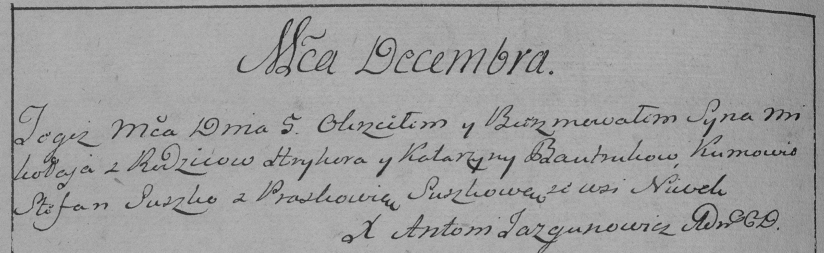 Mča Decembra.
Tegiż Mča Dnia 5. Chrzciłem y Birzmowałem Syna Mi
kołaja z Rodzicow Hryhora y Katarzyny Bautrukow, Kumowie
Stefan Suszko z Praskowią Suszkową ze wsi Niwek
X Antoni Jazgunowicz